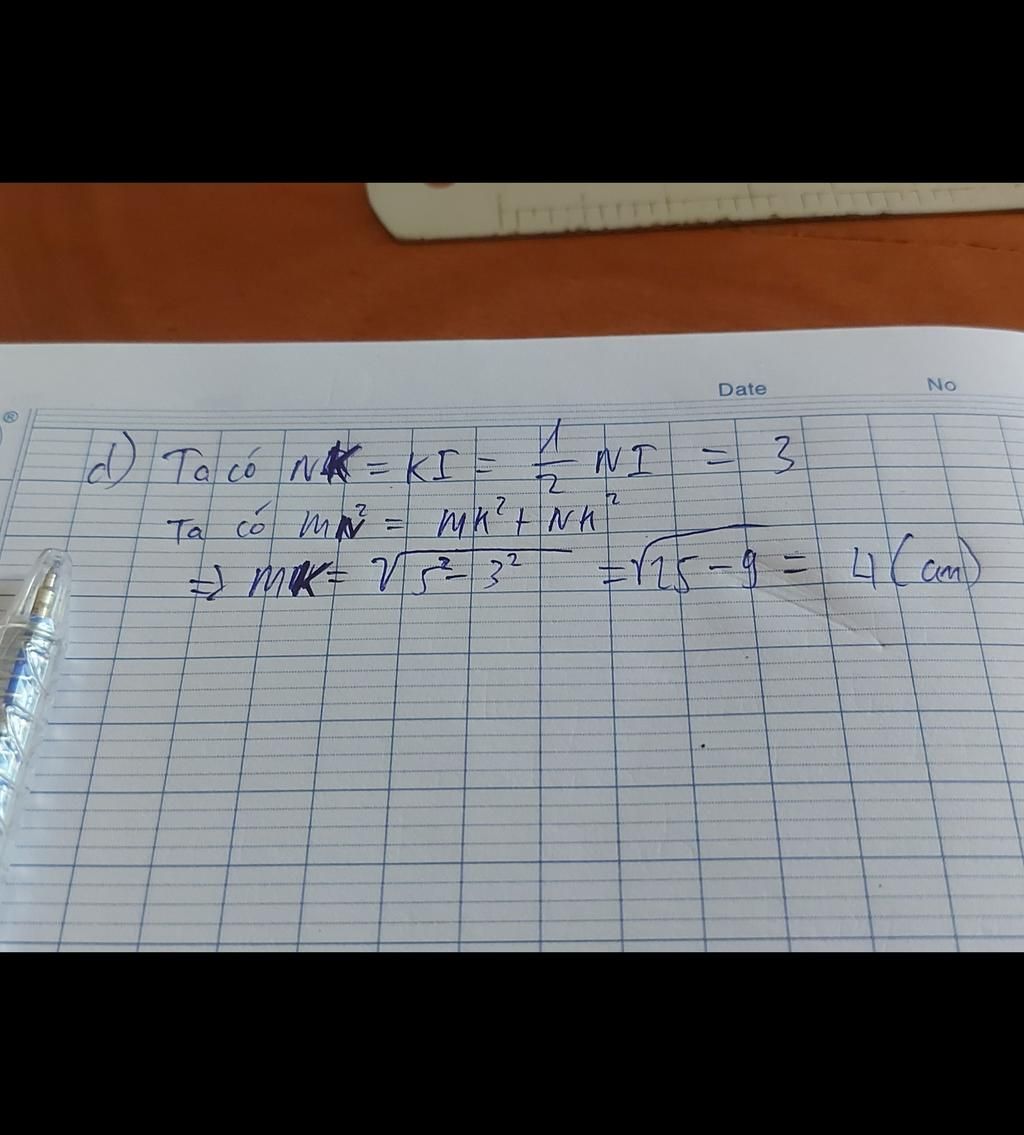 Date No
®
d) Ta có NK = KI = 1/2 NI = 3
Ta có MN² = MK² + NK²
=> MK = √5² - 3² = √25 - 9 = 4 (cm)